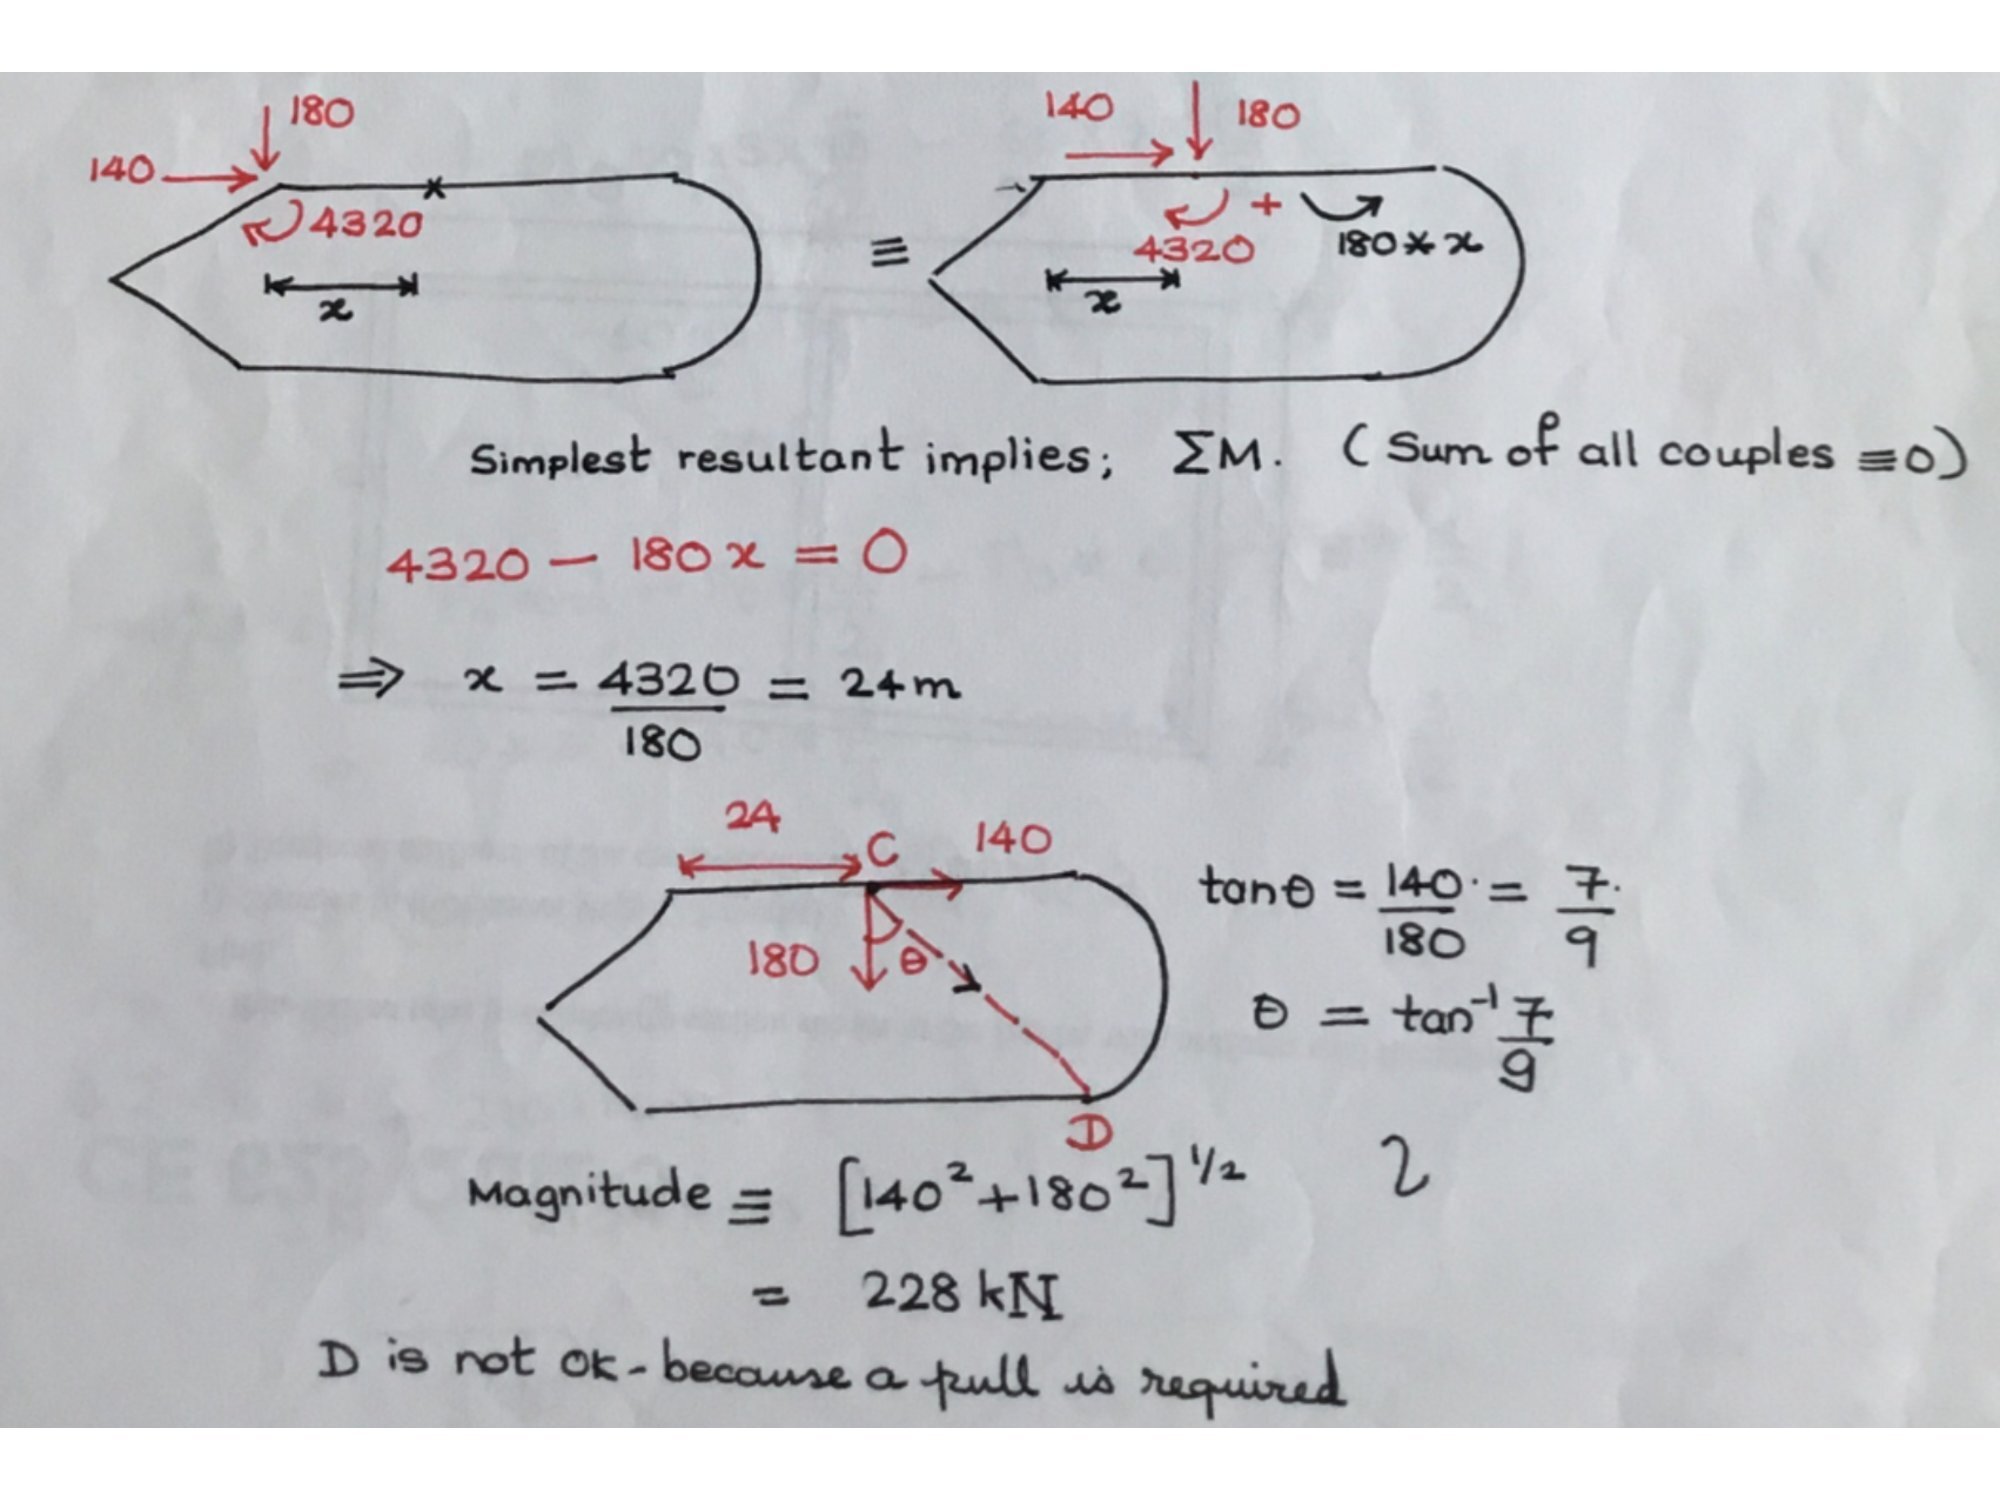 180
140
4320
x
≡
140
180
+
4320
180*x
x
Simplest resultant implies; ΣM. (Sum of all couples ≡0)
4320 − 180x = 0
⇒ x = 4320/180 = 24m
24
C
140
180
θ
D
tanθ = 140/180 = 7/9
θ = tan⁻¹ 7/9
Magnitude ≡ [140²+180²]^1/2
2
= 228 kN
D is not ok - because a pull is required